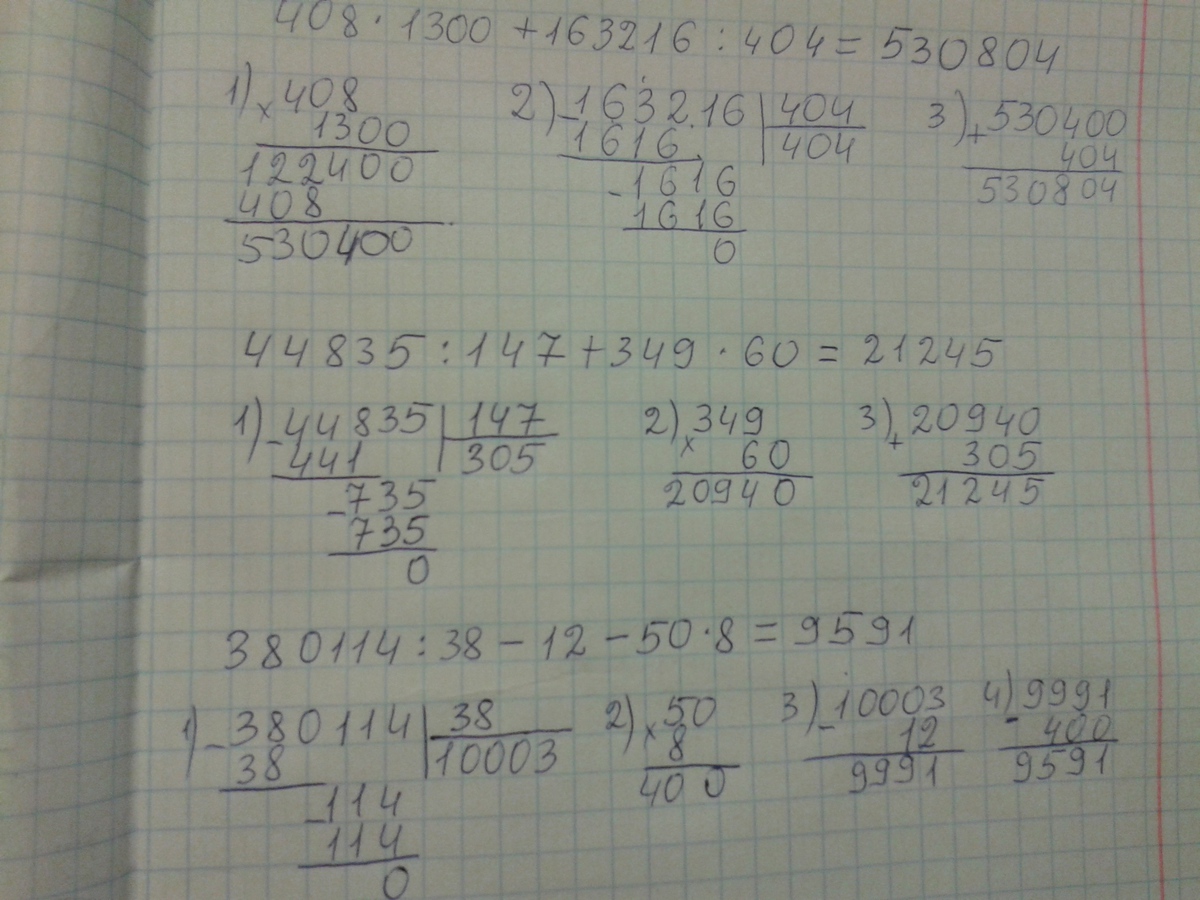 408 · 1300 + 163216 : 404 = 530804
1) × 408 2) - 163216 | 404 3) + 530400
1300 1616 404 404
122400 - 1616 530804
408 1616
530400 0
44835 : 147 + 349 · 60 = 21245
1) - 44835 | 147 2) × 349 3) + 20940
441 305 60 305
- 735 20940 21245
735
0
380114 : 38 - 12 - 50 · 8 = 9591
1) - 380114 | 38 2) × 50 3) - 10003 4) - 9991
38 10003 8 12 400
- 114 400 9991 9591
114
0